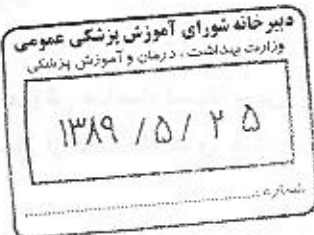 دبیرخانه شورای آموزش پزشکی عمومی
وزارت بهداشت ، درمان و آموزش پزشکی
۱۳۸۹ / ۵ / ۲۵
شماره: